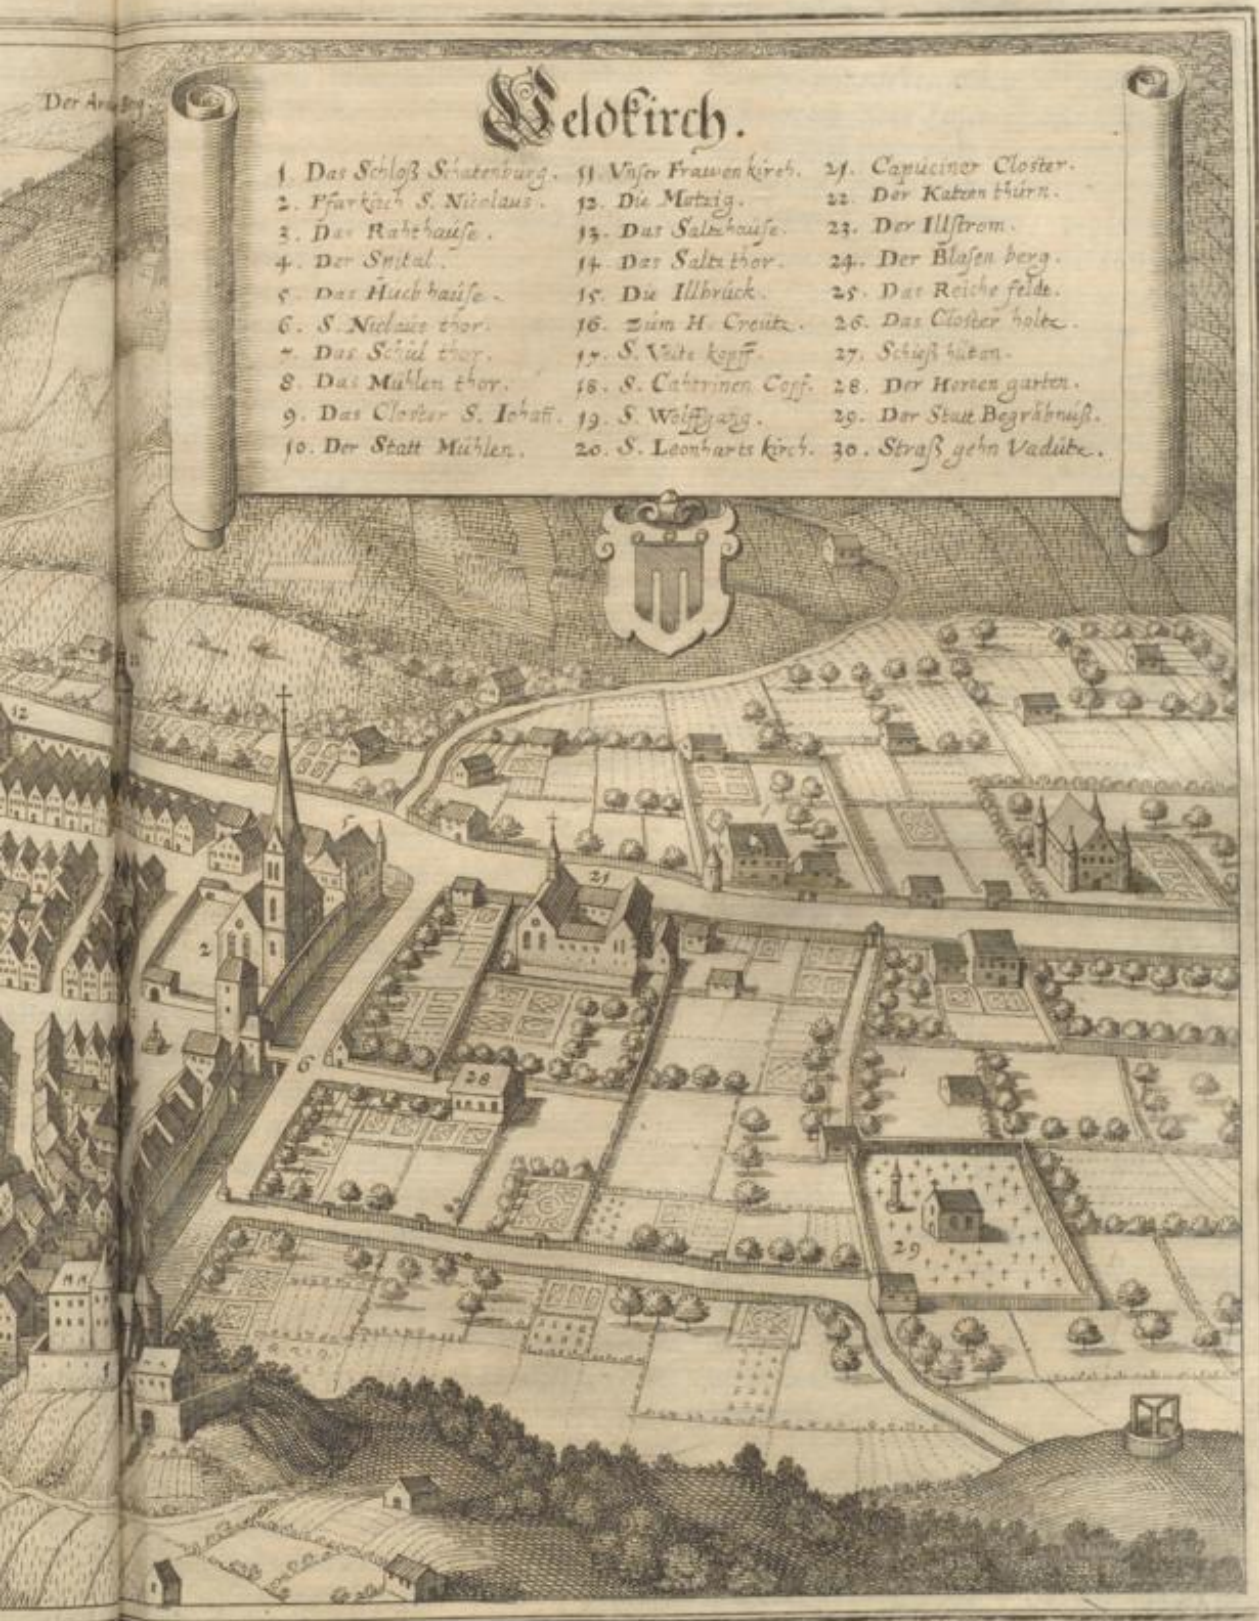 Der Arn Berg.
Veldkirch.
1. Das Schloß Schatenburg.
2. Pfarkirch S. Nicolaus.
3. Das Rahthause.
4. Der Spital.
5. Das Huebhause.
6. S. Niclaus thor.
7. Das Schul thor.
8. Das Mühlen thor.
9. Das Closter S. Iohañ.
10. Der Statt Mühlen.
11. Vnser Frawen kirch.
12. Die Metzig.
13. Das Saltzhause.
14. Das Saltz thor.
15. Die Illbrück.
16. Zum H. Creütz.
17. S. Veits kopff.
18. S. Cahtrinen Copf.
19. S. Wolffgang.
20. S. Leonharts kirch.
21. Capuciner Closter.
22. Der Katzen thurn.
23. Der Illstrom.
24. Der Blasen berg.
25. Das Reiche felde.
26. Das Closter holtz.
27. Schieß hüten.
28. Der Herren garten.
29. Der Statt Begräbnuß.
30. Straß gehn Vadütz.
12
5
21
2
6
28
29
1